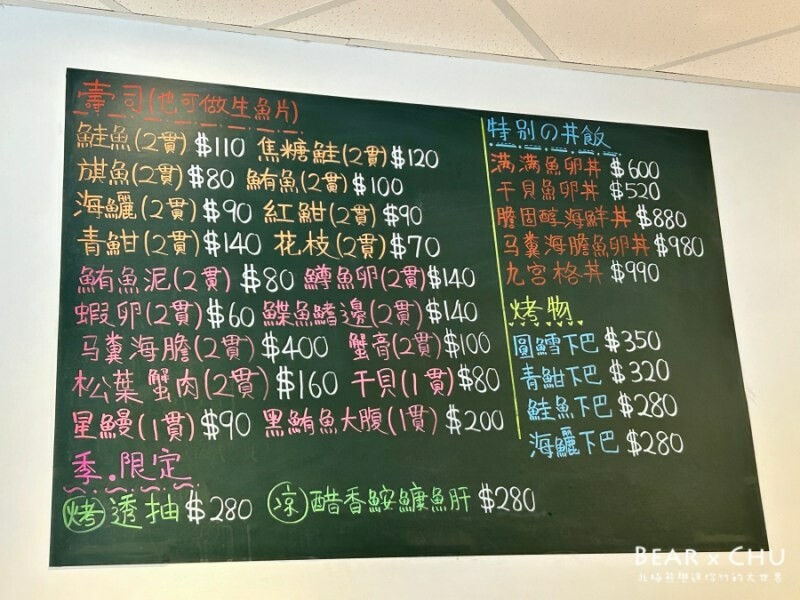 壽司(也可做生魚片)
鮭魚(2貫) $110 焦糖鮭(2貫) $120
旗魚(2貫) $80 鮪魚(2貫) $100
海鱺(2貫) $90 紅魽(2貫) $90
青魽(2貫) $140 花枝(2貫) $70
鮪魚泥(2貫) $80 鱒魚卵(2貫) $140
蝦卵(2貫) $60 鰈魚鰭邊(2貫) $140
马糞海膽(2貫) $400 蟹膏(2貫) $100
松葉蟹肉(2貫) $160 干貝(1貫) $80
星鰻(1貫) $90 黑鮪魚大腹(1貫) $200
季.限定
烤 透抽 $280 涼 醋香鮟鱇魚肝 $280
特别の丼飯
满满魚卵丼 $600
干貝魚卵丼 $520
膽固醇海鮮丼 $880
马糞海膽魚卵丼 $980
九宮格丼 $990
烤物
圓鱈下巴 $350
青魽下巴 $320
鮭魚下巴 $280
海鱺下巴 $280
BEAR x CHU